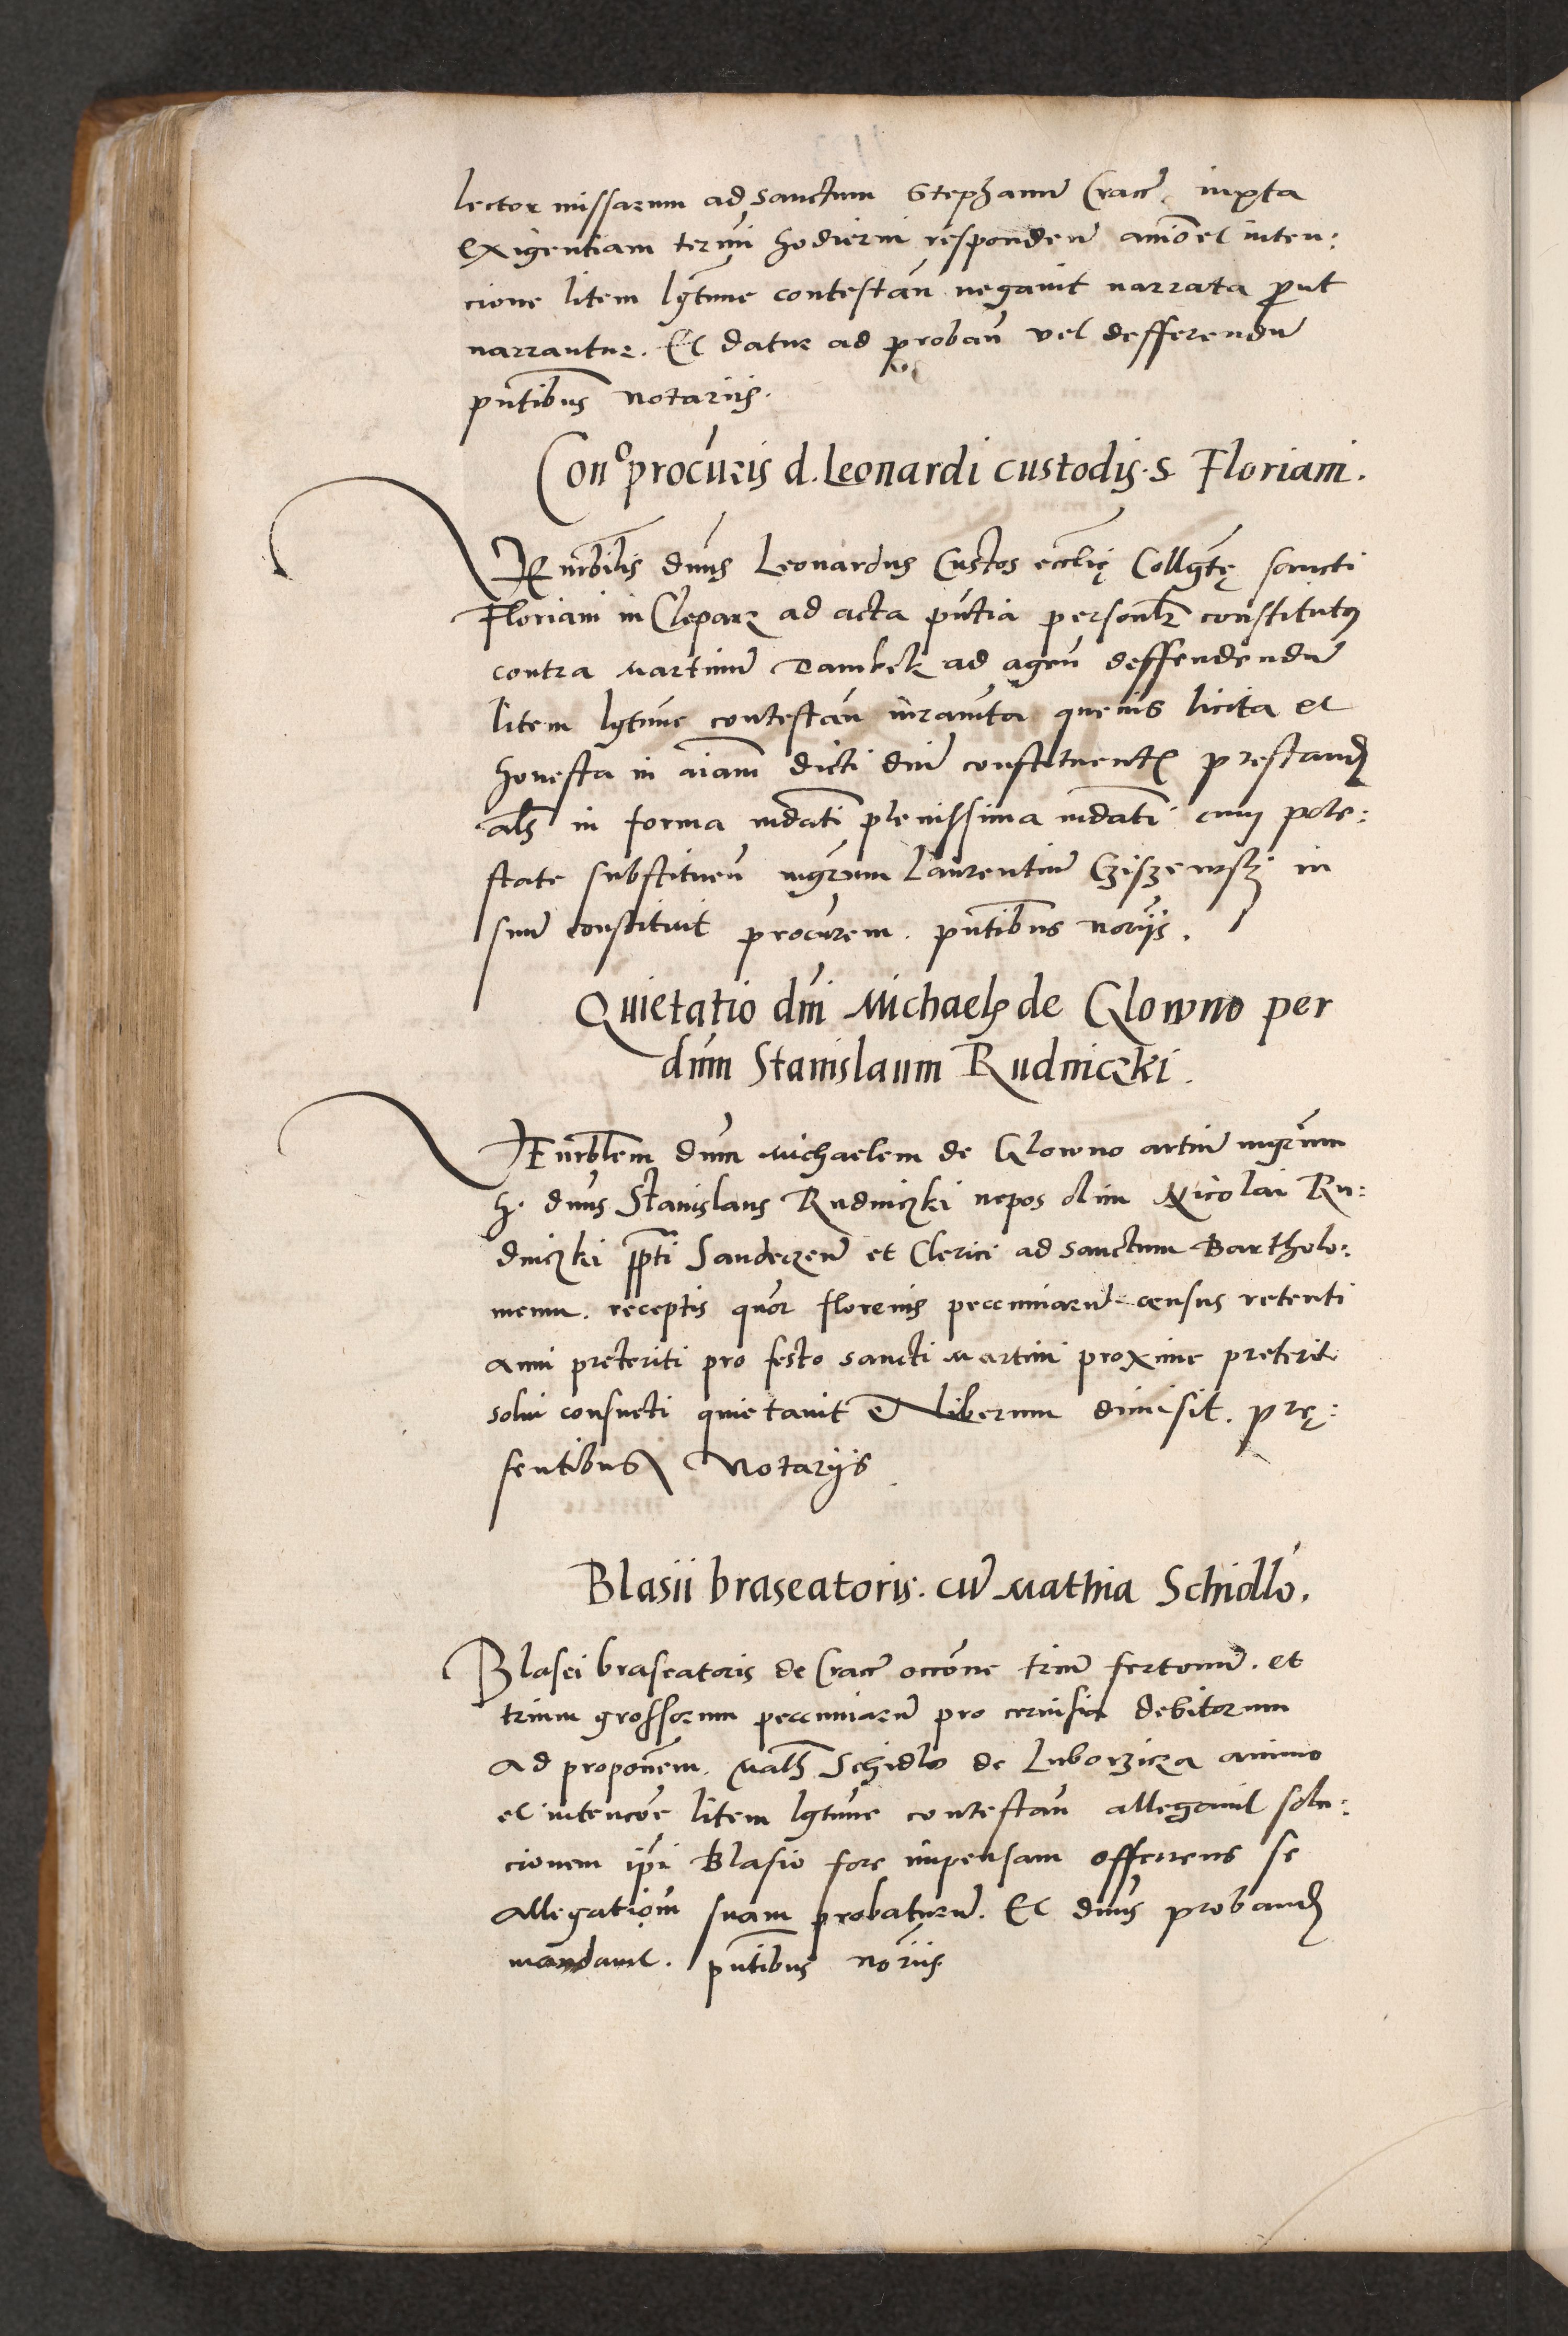 lector missarum ad sanctum Stephanu͂ Crac͂ iuxta
exigentiam termi͂ hodierni responden͂ anio͂ et inten:
cione litem lgt͂ime contestan͂ negauit narrata p̱ut
narrantur. Et datur ad proban͂ vel defferendu͂
pn͂tibus notariis.
Conº procu͂ris d. Leonardi custodis. S Floriani.
Vn͂rbilis dn͂us Leonardus Custos eccl͂ię Collgt͂ę sancti
Floriani in Clepar͂ ad acta pn͂tia personl͂r constitutꝰ
contra Martinu͂ Dambek ad agen͂ deffendendu͂
litem lgt͂ime contestan͂ iuram͂ta queuis licita et
honesta in ai͂am dicti dn͂i constituent͂ prestand͂
al͂s in forma mda͂ti plenissima mda͂ti cum pote:
state substituen͂ mgr͂um Laurentiu͂ Cziszewsk͂ in
suu͂ constituit procu͂rem. pn͂tibus nor͂ijs.
Quietatio dn͂i Michael͂ de Glowno per
dn͂um Stanislaum Rudniczki.
Vn͂rbl͂em dn͂um Michaelem de Glowno artiu͂ mgr͂um
h. dn͂us Stanislaus Rudniczki nepos olim Nicolai Ru:
dniczki pp͂ti Sandeczen͂ et Clerici ad sanctum Bartholo:
meum. receptis quo͂r florenis peccuniaru͂ census retenti
anni preteriti pro festo sancti Martini proxime preterit͂
solui consueti quietauit et liberum dimisit. prę:
sentibus Notarijs
Blasii braseatoris. cu͂ Mathia Schidlo.
Blasei braseatoris de Crac͂ acco͂ne triu͂ fertonu͂. et
trium grossorum peccuniaru͂ pro ceruisia debitorum
ad propone͂m. Math͂ Schidlo de Luborzicza animo
et intenco͂e litem lgt͂ime contestan͂ allegauit solu:
cionem ip͂i Blasio fore impensam offerens se
allegatiom͂ suam probaturu͂. Et dn͂us proband͂
mandauit. pn͂tibus nor͂iis